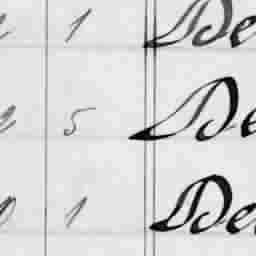 1 De
5 De
1 De